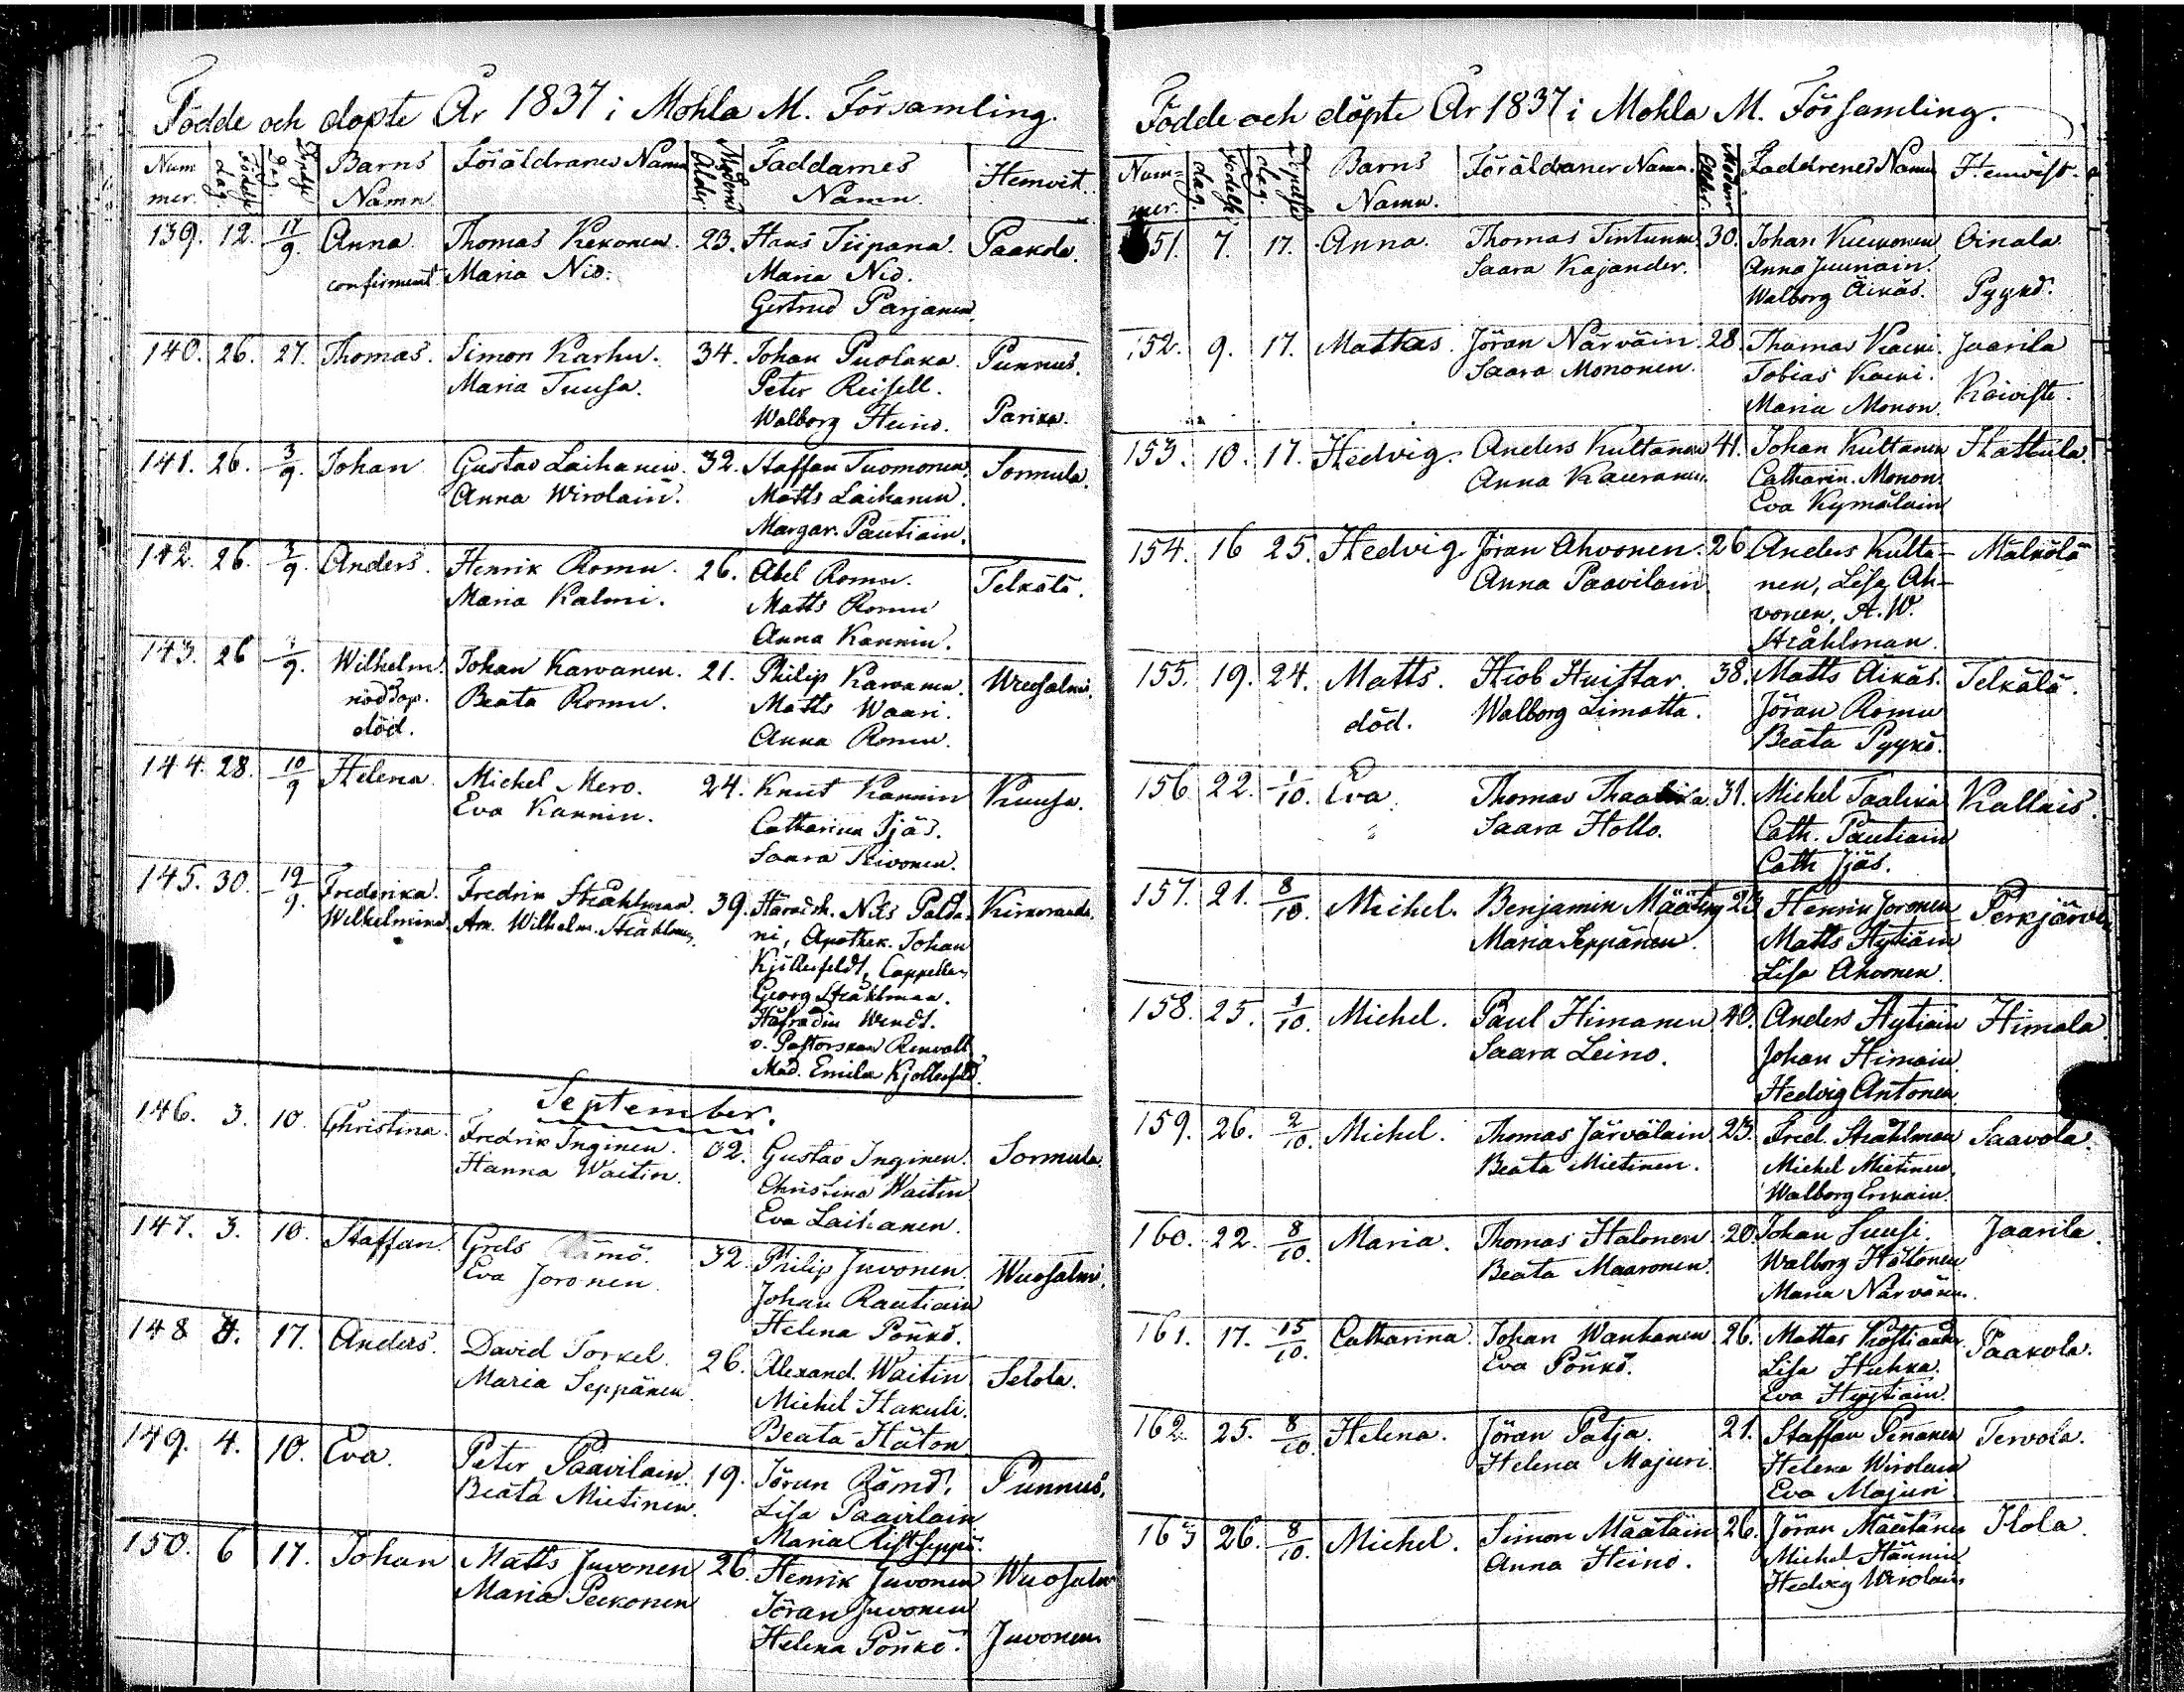 Födde och döpte År 1837 i Mohla M. Församling.
Num mer. Födelse dag. Döpelse dag. Barns Namn. Föräldrarnes Namn Modrens ålder. Faddarnes Namn. Hemvist.
139. 12. 17/9. Anna Thomas Kekonen. 23. Hans Tiipana. Paakola.
confirmerat. Maria Nio. Maria Nio.
Gertrud Parjanen.
140. 26. 27. Thomas. Simon Karhu. 34. Johan Puolaka. Punnus.
Maria Tuusa. Peter Reisell.
Walborg Heino. Parika.
141. 26. 3/9. Johan Gustav Laihanen. 32. Staffan Tuomonen. Sormula.
Anna Wirolain. Matts Laihanen.
Margar. Pautiain.
142. 26. 3/9. Anders. Henrik Romu. 26. Abel Romu. Telkälä.
Maria Kalmi. Matts Romu
Anna Kannin.
143. 26 /9. Wilhelm. Johan Karvanen. 21. Philip Karvanen. Wuosalmi.
nöddöp. Beata Romu. Matts Waari.
död. Anna Romu.
144. 28. 10/9 Helena. Michel Mero. 24. Knut Kannin Kuusa.
Eva Kannin. Catharina Ijäs.
Saara Peivonen.
145. 30. 19/9. Frederika. Fredrik Stråhlman. 39. Häradsh. Nils Palda- Kirkoranta.
Wilhelmina. An. Wilhelm. Stråhlman. ni, Apothek. Johan
Kjöllerfeldt, Cappellan
Georg Stråhlman.
Hofrådin Wendt.
o. Pastorskan Renvall
Mad. Emila Kjöllerfeld.
September.
146. 3. 10. Christina. Fredrik Inginen. 32. Gustav Inginen. Sormula.
Hanna Waitin. Christina Waitin
Eva Laihanen.
147. 3. 10. Staffan. Grels Rämö. 32. Philip Juvonen. Wuosalmi.
Eva Joronen. Johan Rautiain
Helena Pönkö.
148 4. 17. Anders. David Torkel. 26. Alexand. Waitin Selola.
Maria Seppänen. Michel Hakuli.
Beata Häton
149. 4. 10. Eva. Peter Paavilain. 19. Jöran Rämö. Punnus.
Beata Mietinen. Lisa Paavilain
Maria Ristseppä.
150. 6 17. Johan Matts Juvonen 26. Henrik Juvonen Wuosalm
Maria Peekonen Jöran Juvonen
Helena Pönkö. Juvonen
Födde och döpte År 1837 i Mohla M. Församling.
Num= mer. Födelse dag. Döpelse dag. Barns Namn. Föräldraner Namn. Modrens ålder. Faddrenes Namn Hemvist.
151. 7. 17. Anna. Thomas Tintunen. 30. Johan Kuukonen Oinala
Saara Kajander. Anna Juuriain.
Walborg Äikäs. Pyykö.
152. 9. 17. Matthas. Jöran Närväin. 28. Thomas Kaeki. Jaarila
Saara Mononen. Tobias Kaeki. Kaiviste.
Maria Monon.
153. 10. 17. Hedvig. Anders Kultanen 41. Johan Kultanen Hattula.
Anna Kauranen. Catharin. Monon.
Eva Kymäläin
154. 16 25. Hedvig. Jöran Ahvonen. 26 Anders Kulta- Mälkölä
Anna Paavilain. nen, Lisa Ah-
vonen, A. W.
Stråhlman.
155. 19. 24. Matts. Hiob Huistar. 38. Matts Äikäs. Telkälä.
död. Walborg Limatta. Jöran Romu
Beata Pyykö.
156 22. 1/10. Eva. Thomas Thaalika. 31. Michel Taalika Kallais.
Saara Hollo. Cath. Pautiain
Cath Ijäs.
157. 21. 8/10. Michel. Benjamin Määttin 23 Henrik Joronen Perkjärvi
Maria Seppänen. Matts Hytiäin
Lisa Ahvonen
158. 25. 1/10. Michel. Paul Himanen 40. Anders Hytiäin Himala
Saara Leino. Johan Himain
Hedvig Antonen
159. 26. 2/10. Michel. Thomas Järväläin 23. Fred. Stråhlman Saavola.
Beata Mietinen. Michel Mietinen
Walborg Erikain
160. 22. 8/10. Maria. Thomas Halonen 20. Johan Suusi. Jaarila.
Beata Maaronen. Walborg Hältonen
Maria Närvänen.
161. 17. 15/10. Catharina. Johan Wanhanen 26. Mattas Kostiain Paakola.
Eva Pönkö. Lisa Huhka.
Eva Hyytiäin.
162. 25. 8/10. Helena. Jöran Patja. 21. Staffan Pinanen Tervola.
Helena Majuri. Helena Wirolain
Eva Majuri
163 26. 8/10. Michel. Simon Määtäin 26. Jöran Määtänen Ilola.
Anna Heino. Michel Hännin
Hedvig Wirolain